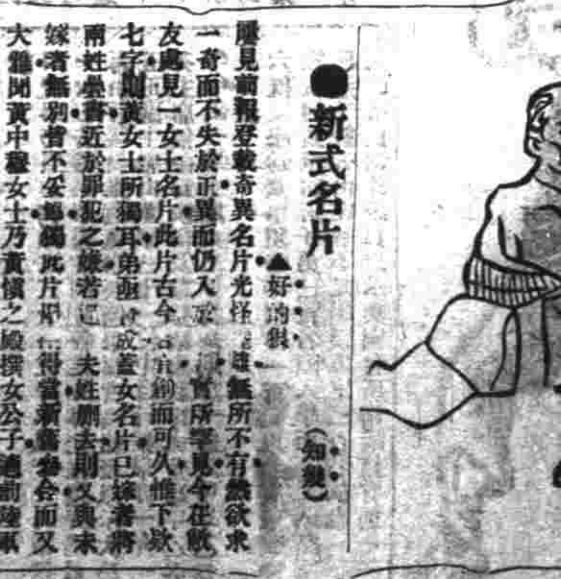 ●新式名片
(知幾)
▲好的很
屢見前報登載奇異名片光怪 離無所不有然欲求
一奇而不失於正異而仍入 所罕見今在敝
友處見一女士名片此片古今 創而可久惟下款
七字則黃女士所獨耳弟 成蓋女名片已嫁者將
兩姓疊書近於罪犯之嫌若 夫姓刪去則又與未
嫁者無別皆不妥 此片 得當新舊 合而又
大雅聞黃中 女士乃黃慎之殿撰女公子 前陸軍